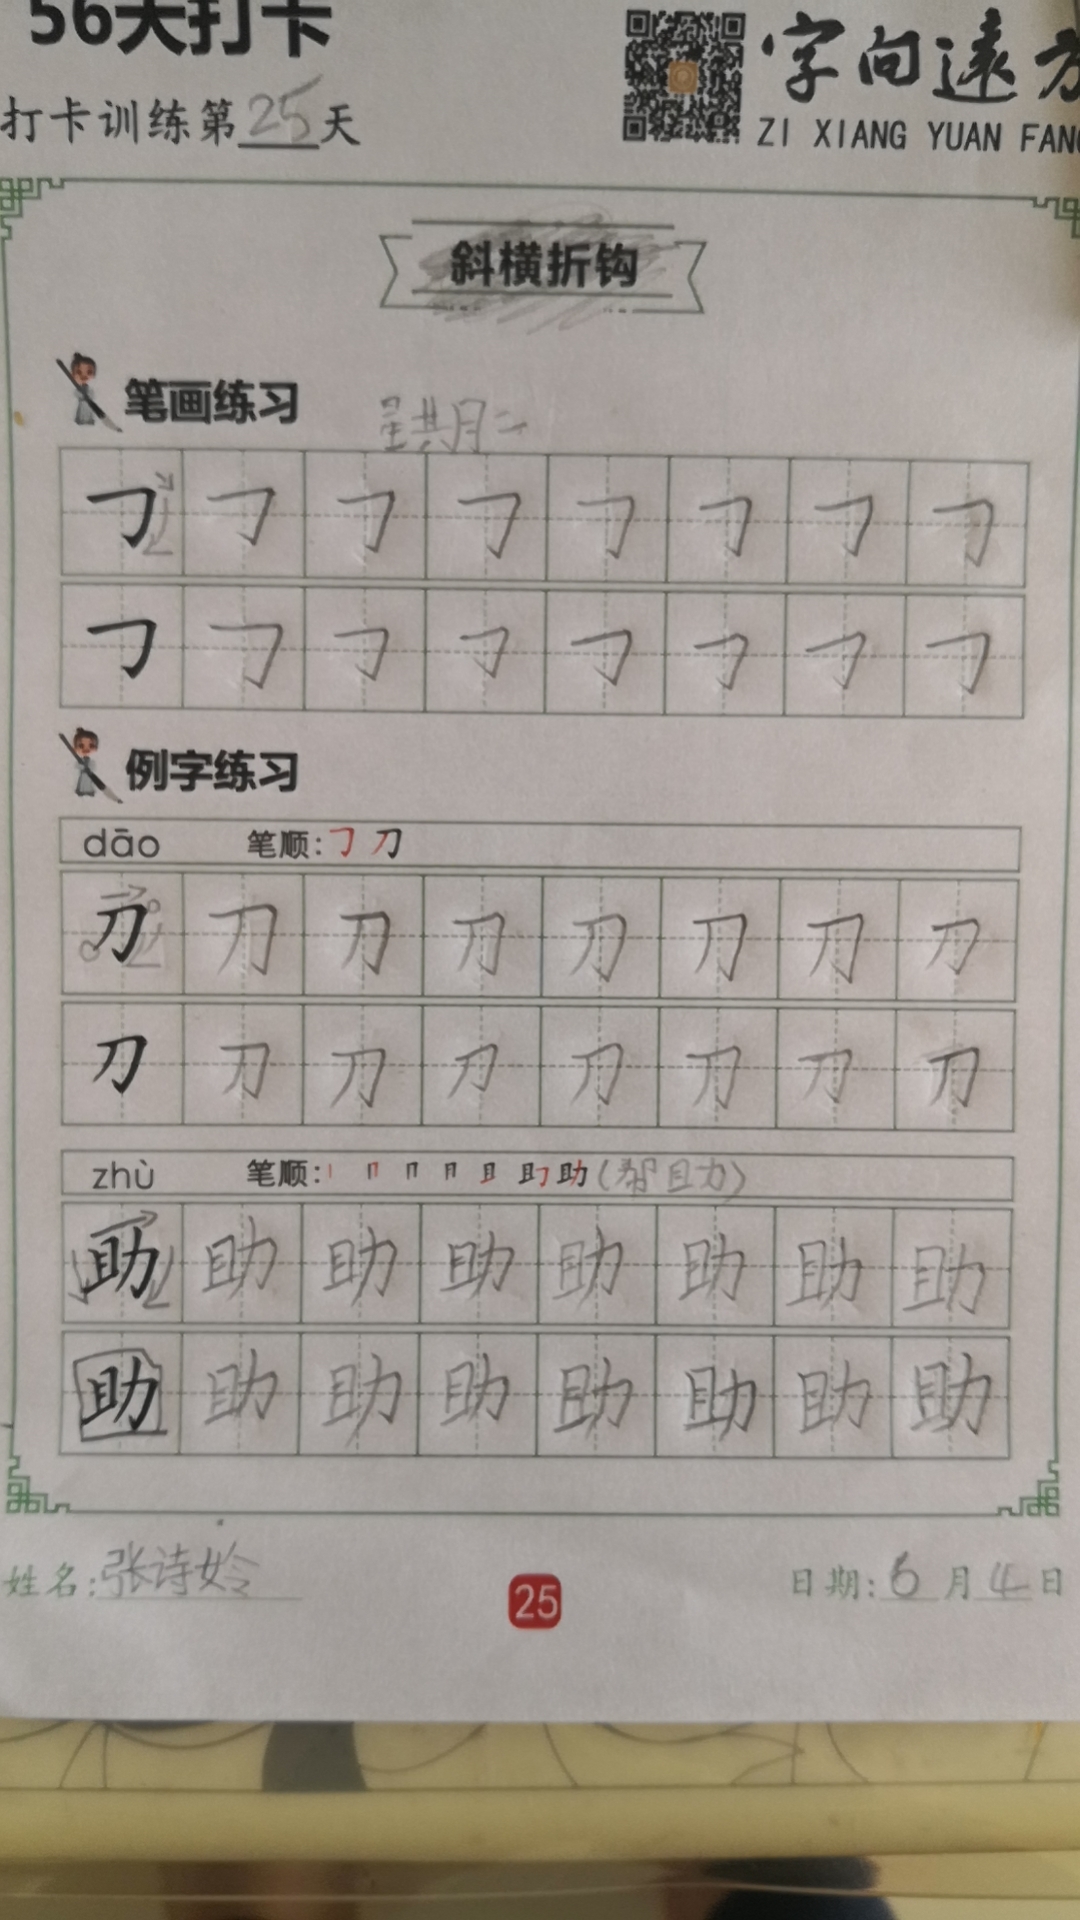 56天打卡
打卡训练第25天
字向遠方
ZI XIANG YUAN FANG
斜横折钩
笔画练习
星期二
例字练习
dāo 笔顺: 𠃌 刀
刀 刀 刀 刀 刀 刀 刀 刀
刀 刀 刀 刀 刀 刀 刀 刀
zhù 笔顺: 助 (帮助)
助 助 助 助 助 助 助 助
助 助 助 助 助 助 助 助
姓名: 张诗姈
25
日期: 6月4日